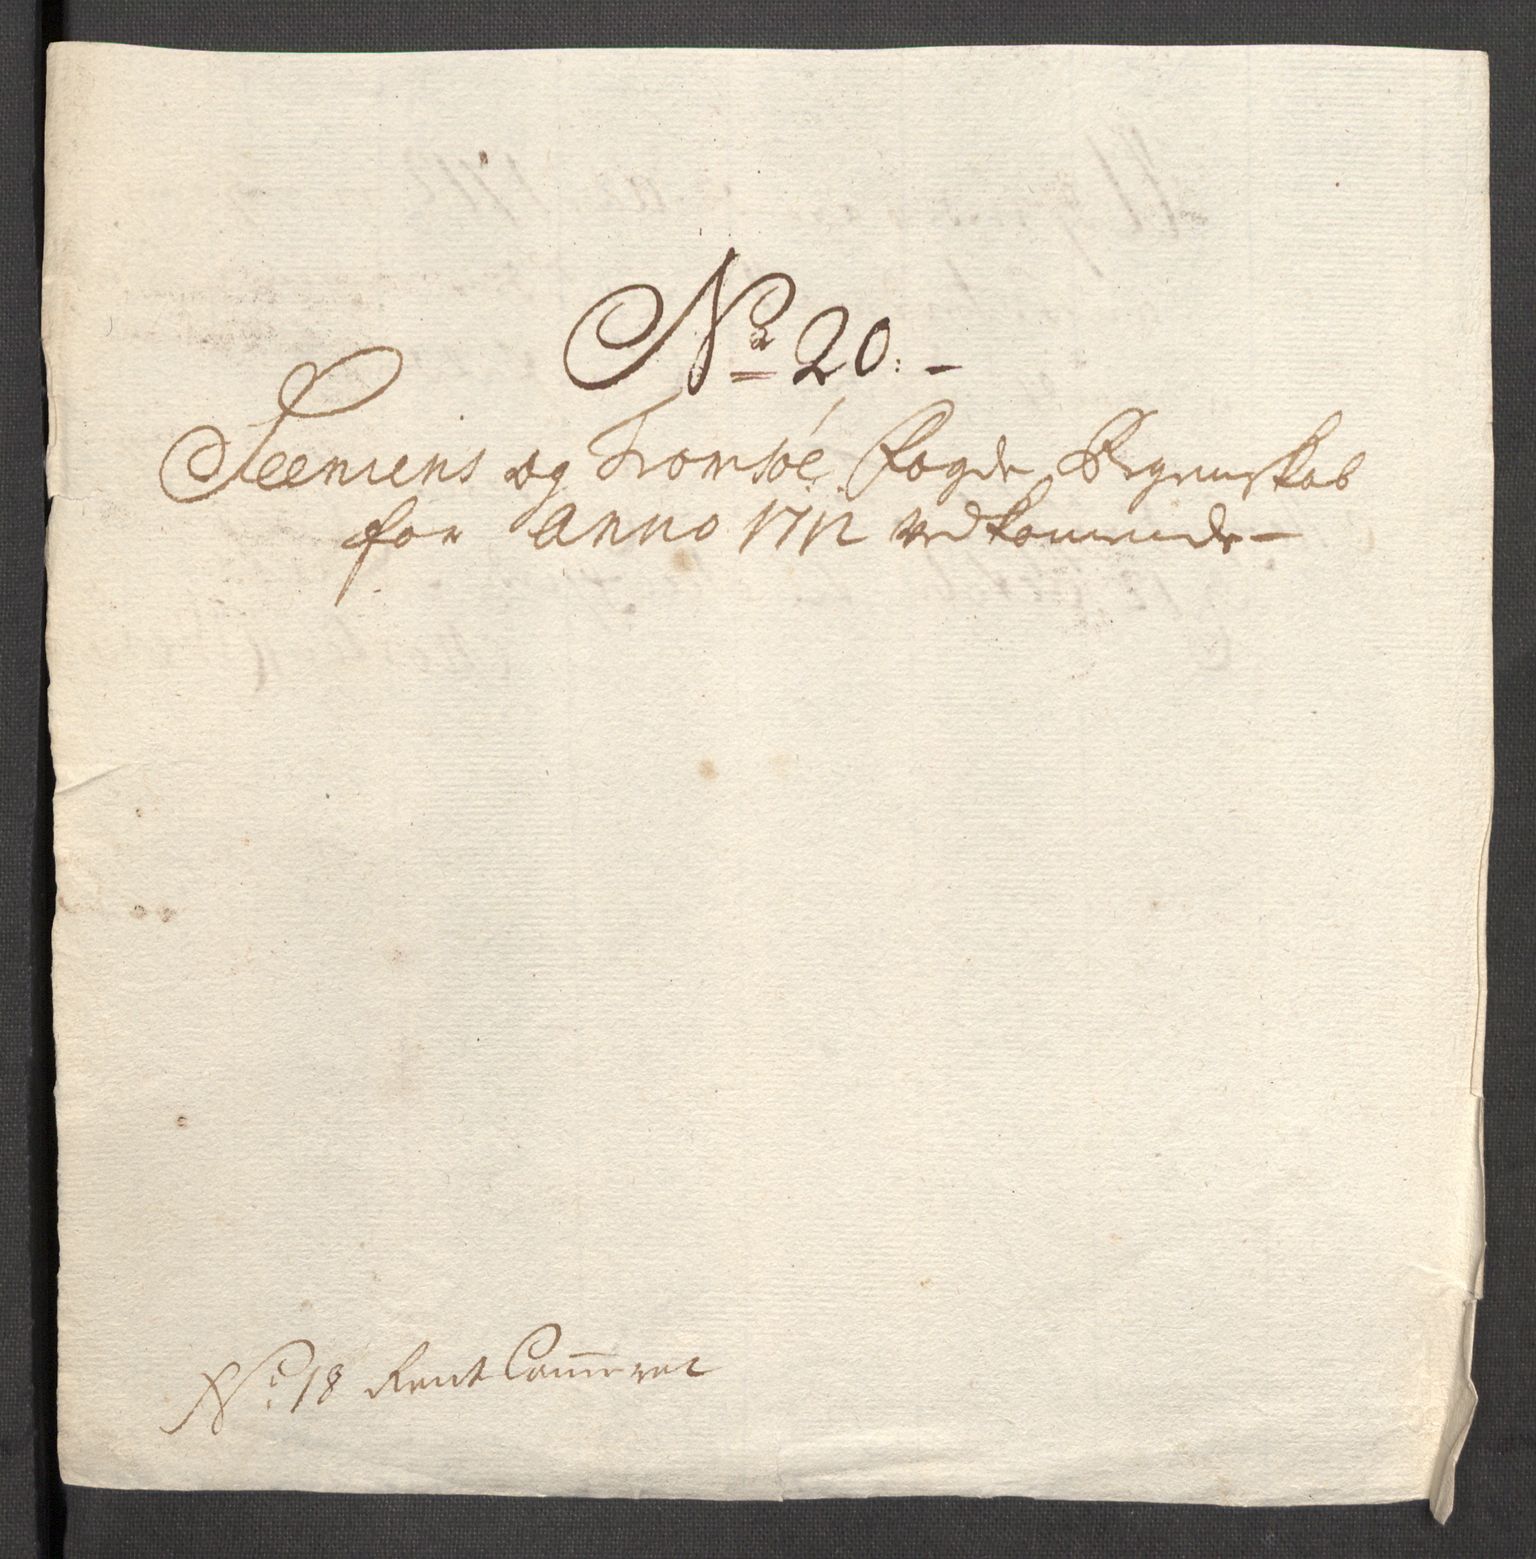 No 20. -
Seeniens og Tromsöe Fogde Regenskab
for Anno 1712 vedkommende -
No. 18 Rent Cammeret